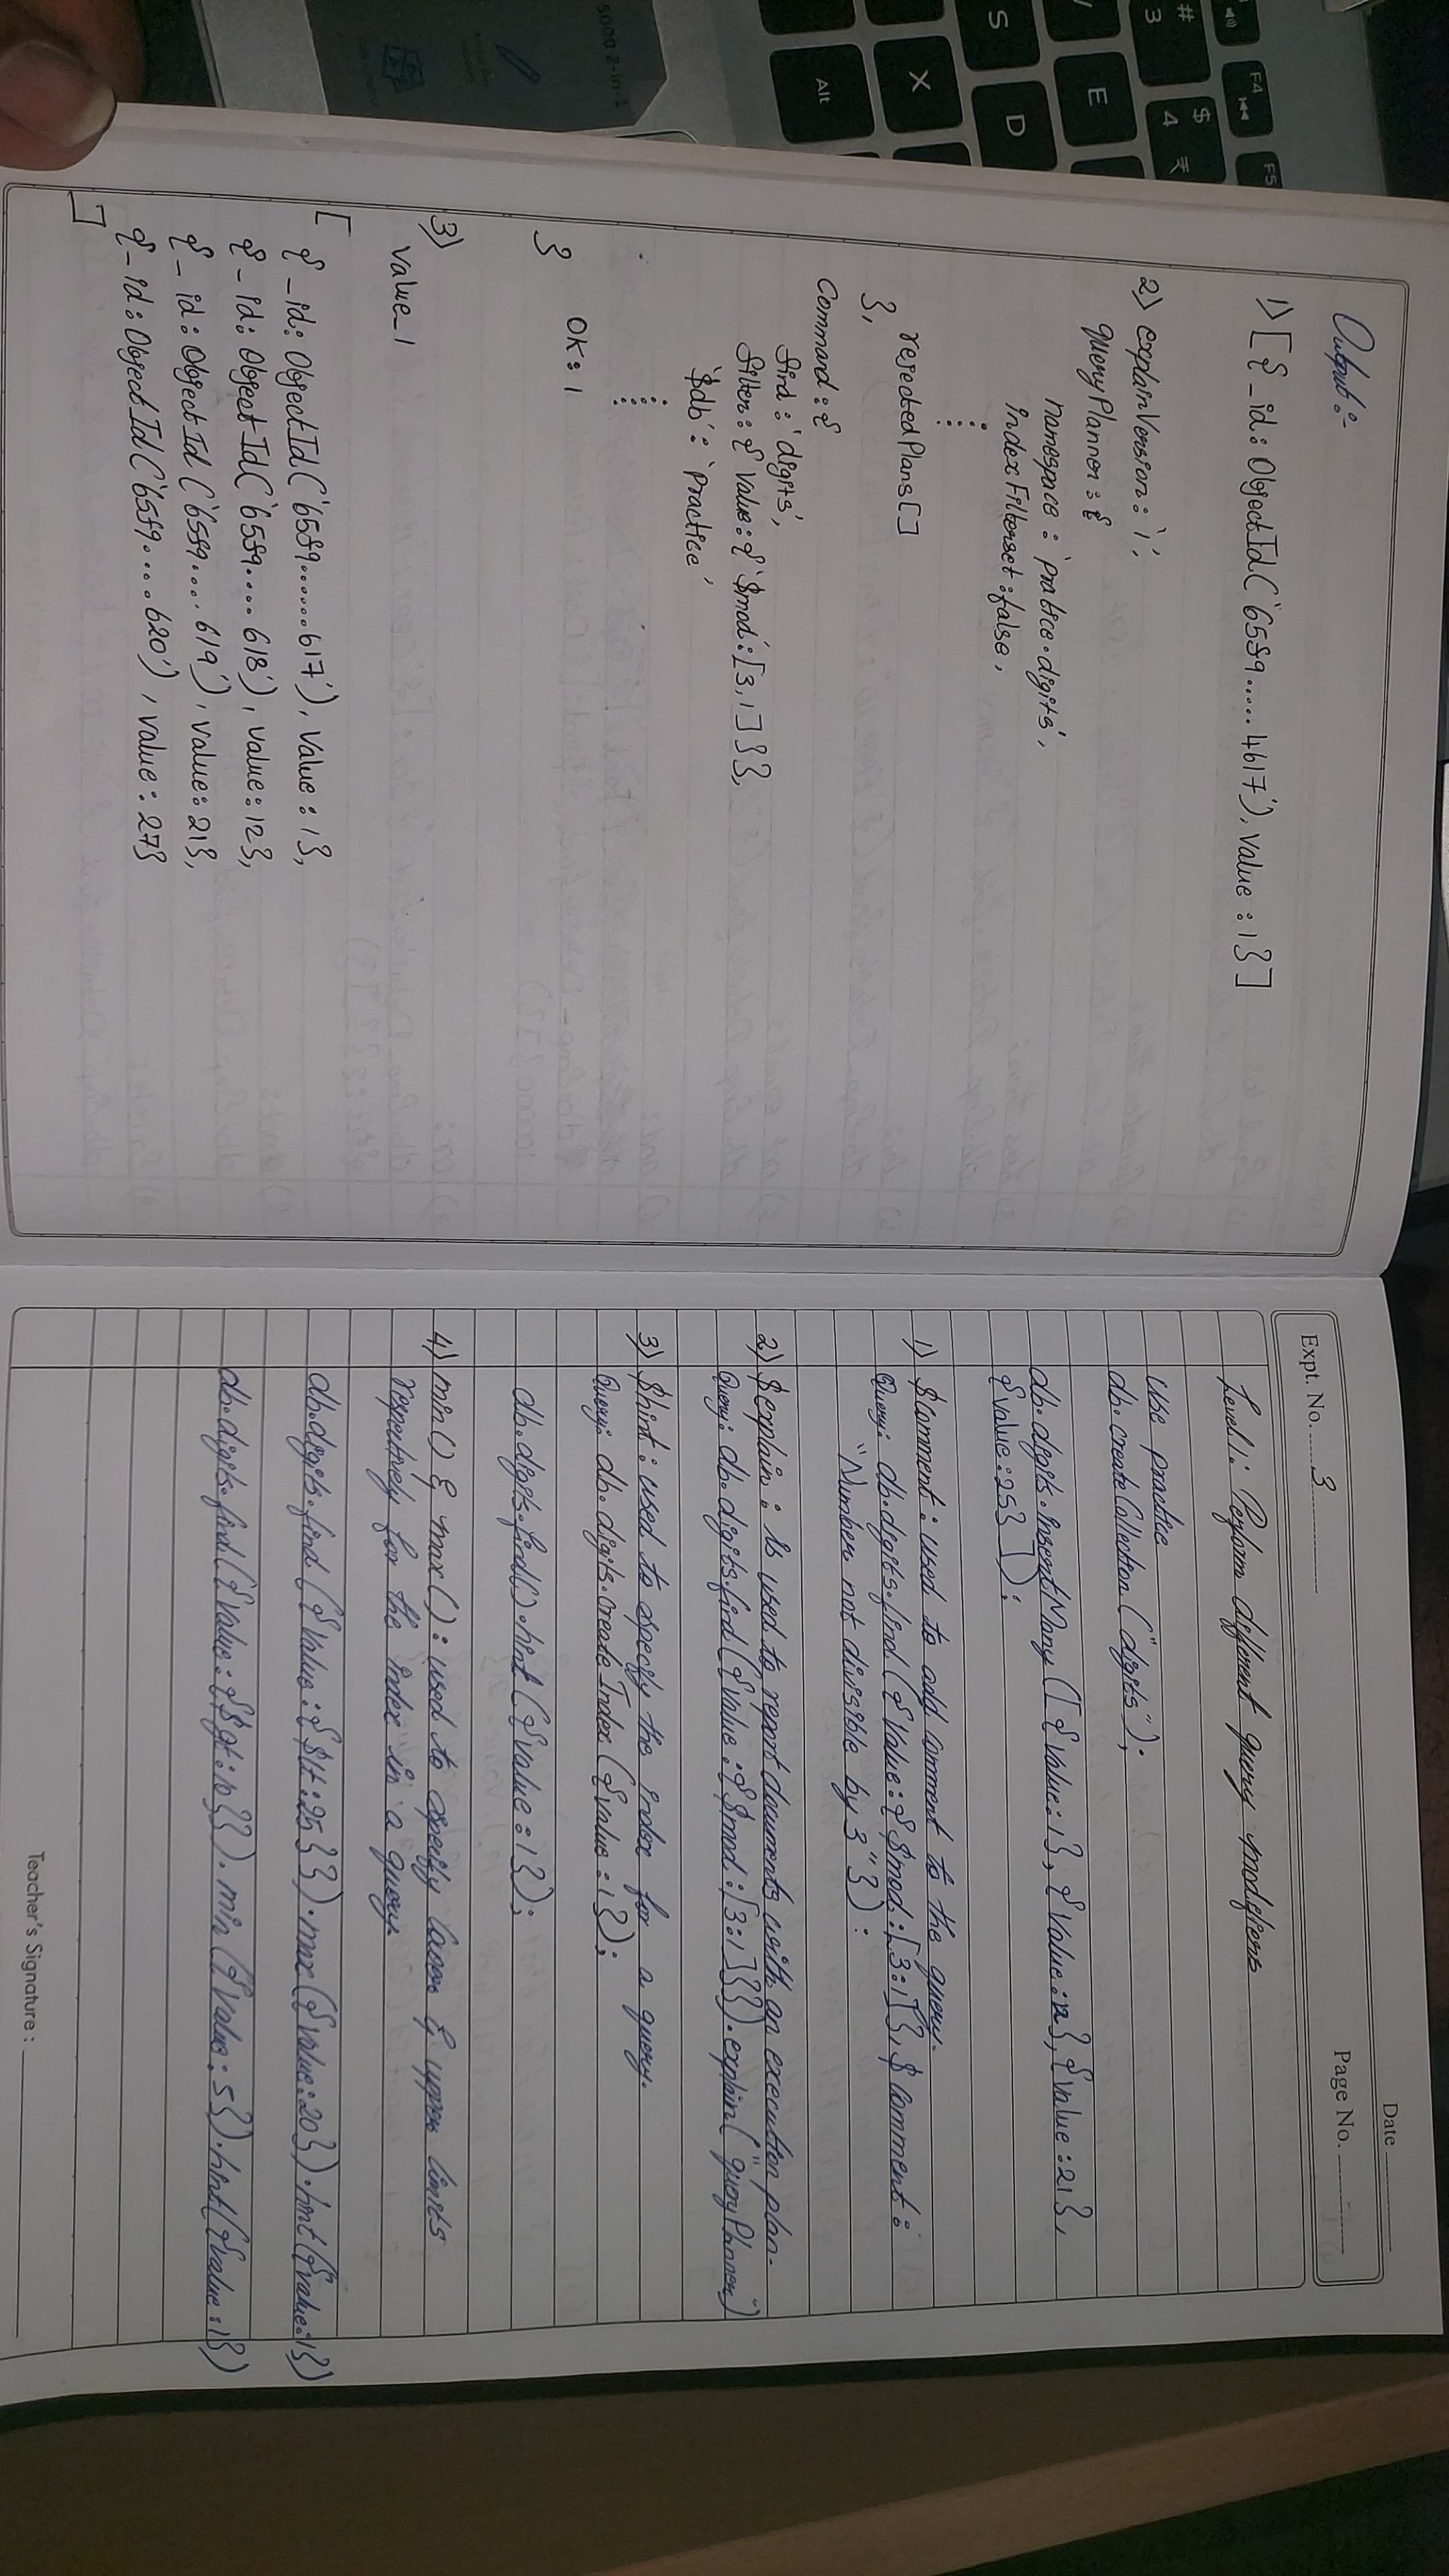 Output :-
1) [{_id: ObjectId('65f9.....4617'), value : 1}]
2) explainVersion : '1',
queryPlanner : {
namespace : 'pratice.digits',
indexFilterset : false,
rejectedPlans[]
},
Command : {
find : 'digits',
filter : { value : {'$mod' : [3,1] }},
'$db' : 'practice'
OK : 1
}
3)
value_1
[
{_id: ObjectId('65f9......617'), value : 1},
{_id: ObjectId('65f9....618'), value : 12},
{_id: ObjectId('65f9....619'), value : 21},
{_id: ObjectId('65f9....620'), value : 27}
]
Date
Page No.
Expt. No. 3
Level 1: Perform different query modifiers
use practice
db.createCollection ("digits");
db.digits.insertMany ([{value:1}, {value:12}, {value:21},
{value:25} ]);
1) $comment : used to add comment to the query.
Query: db.digits.find ({value:{$mod:[3:1]}, $comment :
"Number not divisible by 3"}) :
2) $explain : is used to report documents with an execution plan.
Query: db.digits.find ({value:{$mod:[3:1]}}).explain("queryPlanner")
3) $hint : used to specify the index for a query.
Query: db.digits.createIndex ({value : 1});
db.digits.find().hint ({value : 1});
4) min() & max() : used to specify lower & upper limits
respectively for the index in a query.
db.digits.find ({value : {$lt : 25}}).max ({value:20}).hint ({value:1})
db.digits.find({value : {$gt : 10}}).min ({value:5}).hint({value:1})
Teacher's Signature :
F4
F5
#
3
$
4
₹
E
S
D
X
Alt
5000 2-in-1